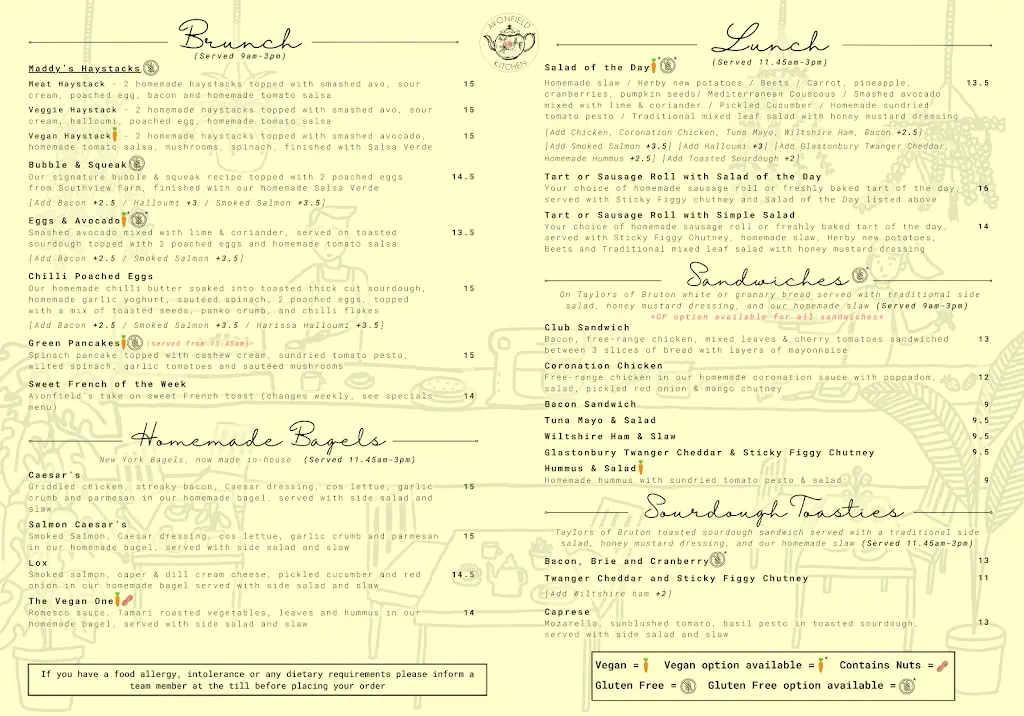 Brunch
(Served 9am-3pm)
Maddy's Haystacks
Meat Haystack - 2 homemade haystacks topped with smashed avo, sour 15
cream, poached egg, bacon and homemade tomato salsa
Veggie Haystack - 2 homemade haystacks topped with smashed avo, sour 15
cream, halloumi, poached egg, homemade tomato salsa
Vegan Haystack - 2 homemade haystacks topped with smashed avocado, 15
homemade tomato salsa, mushrooms, spinach, finished with Salsa Verde
Bubble & Squeak
Our signature bubble & squeak recipe topped with 2 poached eggs 14.5
from Southview Farm, finished with our homemade Salsa Verde
[Add Bacon +2.5 / Halloumi +3 / Smoked Salmon +3.5]
Eggs & Avocado
Smashed avocado mixed with lime & coriander, served on toasted 13.5
sourdough topped with 2 poached eggs and homemade tomato salsa
[Add Bacon +2.5 / Smoked Salmon +3.5]
Chilli Poached Eggs
Our homemade chilli butter soaked into toasted thick cut sourdough, 15
homemade garlic yoghurt, sautéed spinach, 2 poached eggs, topped
with a mix of toasted seeds, panko crumb, and chilli flakes
[Add Bacon +2.5 / Smoked Salmon +3.5 / Harissa Halloumi +3.5]
Green Pancakes (served from 11.45am)
Spinach pancake topped with cashew cream, sundried tomato pesto, 15
wilted spinach, garlic tomatoes and sautéed mushrooms
Sweet French of the Week
Avonfield's take on sweet French toast (changes weekly, see specials 14
menu)
Homemade Bagels
New York Bagels, now made in-house (Served 11.45am-3pm)
Caesar's
Griddled chicken, streaky bacon, Caesar dressing, cos lettuce, garlic 15
crumb and parmesan in our homemade bagel, served with side salad and
slaw
Salmon Caesar's
Smoked Salmon, Caesar dressing, cos lettuce, garlic crumb and parmesan 15
in our homemade bagel, served with side salad and slaw
Lox
Smoked salmon, caper & dill cream cheese, pickled cucumber and red 14.5
onion in our homemade bagel served with side salad and slaw
The Vegan One
Romesco sauce, Tamari roasted vegetables, leaves and hummus in our 14
homemade bagel, served with side salad and slaw
If you have a food allergy, intolerance or any dietary requirements please inform a
team member at the till before placing your order
AVONFIELD
KITCHEN
Lunch
(Served 11.45am-3pm)
Salad of the Day
Homemade slaw / Herby new potatoes / Beets / Carrot, pineapple, 13.5
cranberries, pumpkin seeds/ Mediterranean Couscous / Smashed avocado
mixed with lime & coriander / Pickled Cucumber / Homemade sundried
tomato pesto / Traditional mixed leaf salad with honey mustard dressing
[Add Chicken, Coronation Chicken, Tuna Mayo, Wiltshire Ham, Bacon +2.5]
[Add Smoked Salmon +3.5] [Add Halloumi +3] [Add Glastonbury Twanger Cheddar,
Homemade Hummus +2.5] [Add Toasted Sourdough +2]
Tart or Sausage Roll with Salad of the Day
Your choice of homemade sausage roll or freshly baked tart of the day, 16
served with Sticky Figgy chutney and Salad of the Day listed above
Tart or Sausage Roll with Simple Salad
Your choice of homemade sausage roll or freshly baked tart of the day, 14
served with Sticky Figgy Chutney, homemade slaw, Herby new potatoes,
Beets and Traditional mixed leaf salad with honey mustard dressing
Sandwiches
On Taylors of Bruton white or granary bread served with traditional side
salad, honey mustard dressing, and our homemade slaw (Served 9am-3pm)
*GF option available for all sandwiches*
Club Sandwich
Bacon, free-range chicken, mixed leaves & cherry tomatoes sandwiched 13
between 3 slices of bread with layers of mayonnaise
Coronation Chicken
Free-range chicken in our homemade coronation sauce with poppadom, 12
salad, pickled red onion & mango chutney
Bacon Sandwich 9
Tuna Mayo & Salad 9.5
Wiltshire Ham & Slaw 9.5
Glastonbury Twanger Cheddar & Sticky Figgy Chutney 9.5
Hummus & Salad
Homemade hummus with sundried tomato pesto & salad 9
Sourdough Toasties
Taylors of Bruton toasted sourdough sandwich served with a traditional side
salad, honey mustard dressing, and our homemade slaw (Served 11.45am-3pm)
Bacon, Brie and Cranberry 13
Twanger Cheddar and Sticky Figgy Chutney 11
[Add Wiltshire ham +2]
Caprese
Mozarella, sunblushed tomato, basil pesto in toasted sourdough, 13
served with side salad and slaw
Vegan = Vegan option available = Contains Nuts =
Gluten Free = Gluten Free option available =